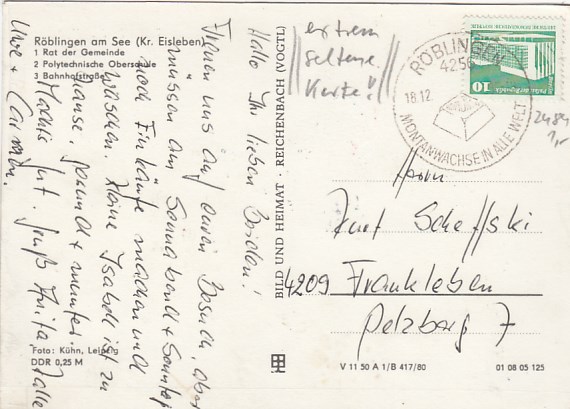 Röblingen am See (Kr. Eisleben)
1 Rat der Gemeinde
2 Polytechnische Oberschule
3 Bahnhofstraße
Hallo Ihr lieben Beiden!
Freuen uns auf euren Besuch, aber
müssen am Sonnabend + Sonntag
noch Einkäufe machen und
Wäschen. Kleine Isabell ist zu
Hause, gesund + munter.
Machts gut. Gruß Anita, Kalle
Uwe + Carmen.
Foto: Kühn, Leipzig
DDR 0,25 M
BILD UND HEIMAT · REICHENBACH (VOGTL)
extrem
seltene
Karte!
RÖBLINGEN
4256
18.12.
MONTANWACHSE IN ALLE WELT
10
2484
1,-
Herrn
Kurt Scheffski
4209 Frankleben
Pelzberg 7
V 11 50 A 1/B 417/80
01 08 05 125